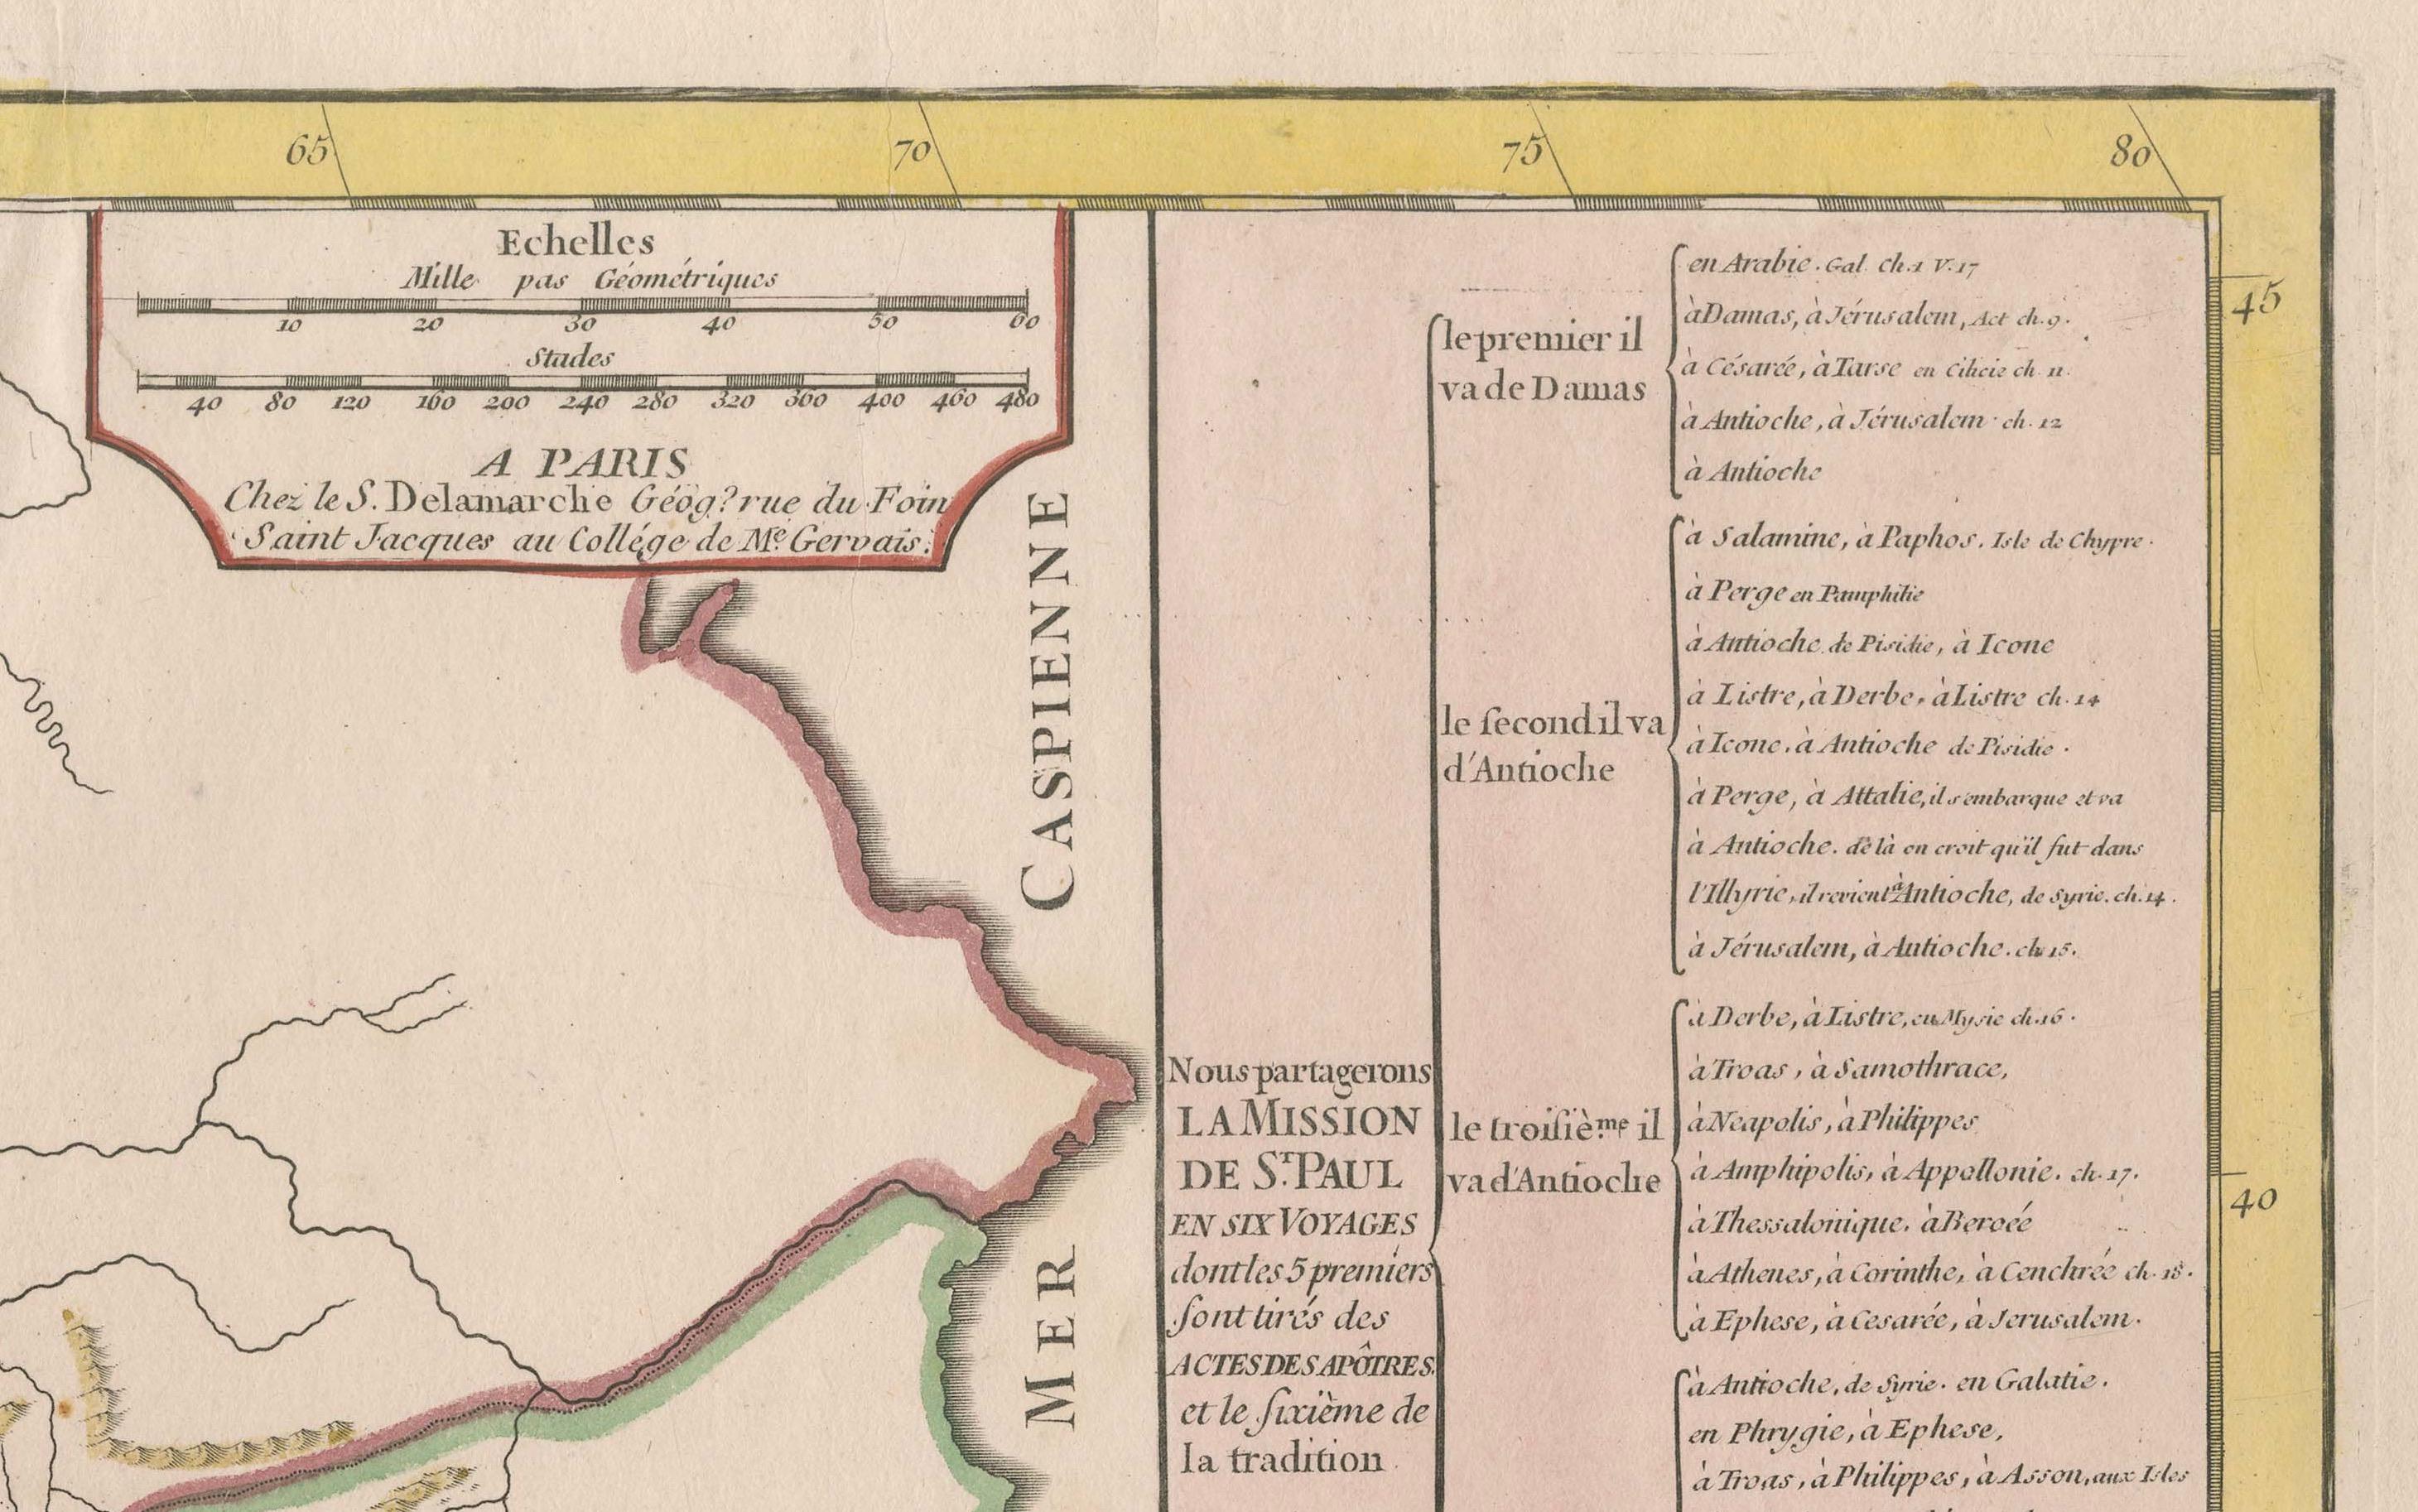 65 70 75 80
Echelles
Mille pas Géométriques
10 20 30 40 50 60
Stades
40 80 120 160 200 240 280 320 360 400 460 480
A PARIS
Chez le S. Delamarche Géog? rue du Foin
Saint Jacques au Collége de Me. Gervais.
MER CASPIENNE
Nous partagerons
LA MISSION
DE ST. PAUL
EN SIX VOYAGES
dont les 5 premiers
sont tirés des
ACTES DES APÔTRES.
et le sixième de
la tradition
le premier il
va de Damas
en Arabie. Gal. Ch. 1 V. 17
à Damas, à Jérusalem, Act ch. 9.
à Césarée, à Tarse en Cilicie ch. 11.
à Antioche, à Jérusalem ch. 12
à Antioche
le second il va
d'Antioche
à Salamine, à Paphos. Isle de Chypre.
à Perge en Pamphilie
à Antioche de Pisidie, à Icone
à Listre, à Derbe, à Listre ch. 14
à Icone, à Antioche de Pisidie.
à Perge, à Attalie, il s'embarque et va
à Antioche. de là on croit qu'il fut dans
l'Illyrie, il revient à Antioche, de Syrie. ch. 14.
à Jérusalem, à Antioche. ch. 15.
le troisième il
va d'Antioche
à Derbe, à Listre, en Mysie ch. 16.
à Troas, à Samothrace,
à Neapolis, à Philippes
à Amphipolis, à Appollonie. ch. 17.
à Thessalonique. à Beroée
à Athenes, à Corinthe, à Cenchrée ch. 18.
à Ephese, à Cesarée, à Jerusalem.
à Antioche, de Syrie. en Galatie.
en Phrygie, à Ephese,
à Troas, à Philippes, à Asson, aux Isles
45
40